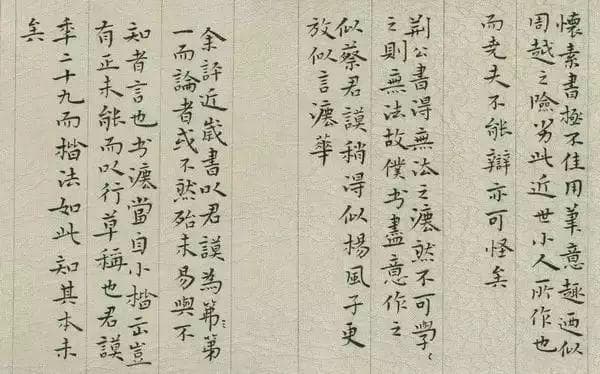 懷素書極不佳用筆意趣迺似
周越之險劣此近世小人所作也
而堯夫不能辯亦可怪矣
荆公書得無法之灋然不可學〻
之則無法故僕书盡意作之
似蔡君謨稍得似楊風子更
放似言灋華
余評近嵗書以君謨為第第
一而論者或不然殆未易與不
知者言也书灋當自小楷出豈
有正未能而以行草稱也君謨
年二十九而楷法如此知其本末
矣